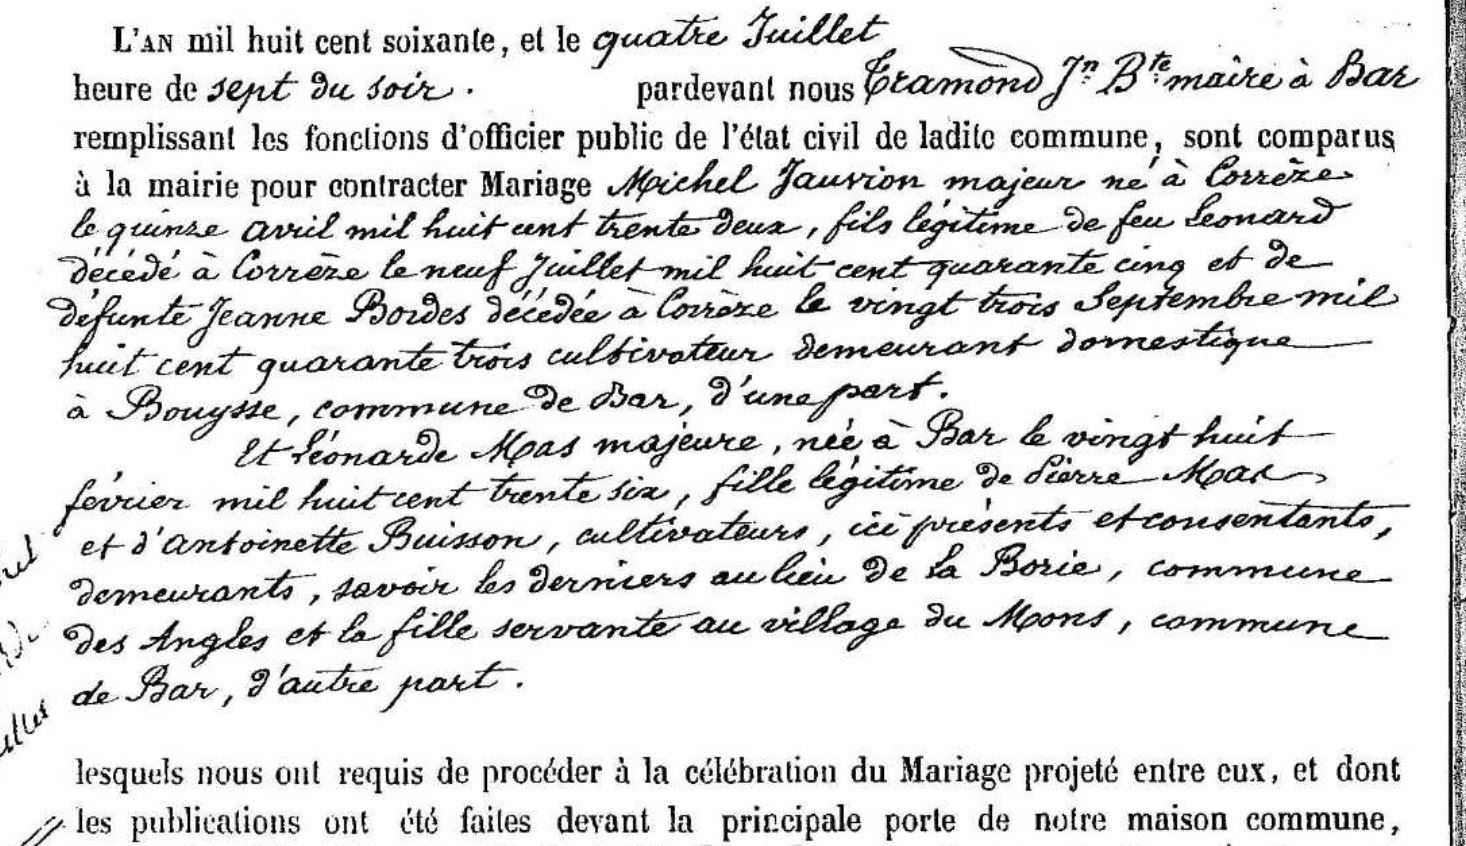 L'AN mil huit cent soixante, et le quatre Juillet
heure de sept du soir. pardevant nous Tramond Jn Bte maire à Bar
remplissant les fonctions d'officier public de l'état civil de ladite commune, sont comparus
à la mairie pour contracter Mariage Michel Jauvion majeur né à Corrèze
le quinze avril mil huit cent trente deux, fils légitime de feu Leonard
décédé à Corrèze le neuf Juillet mil huit cent quarante cinq et de
défunte Jeanne Bordes décédée à Corrèze le vingt trois Septembre mil
huit cent quarante trois cultivateur demeurant domestique
à Bouysse, commune de Bar, d'une part.
Et Léonarde Mas majeure, née à Bar le vingt huit
février mil huit cent trente six, fille légitime de Pierre Mas
et d'Antoinette Buisson, cultivateurs, ici présents et consentants,
demeurants, savoir les derniers au lieu de la Borie, commune
des Angles et la fille servante au village du Mons, commune
de Bar, d'autre part.
lesquels nous ont requis de procéder à la célébration du Mariage projeté entre eux, et dont
les publications ont été faites devant la principale porte de notre maison commune,